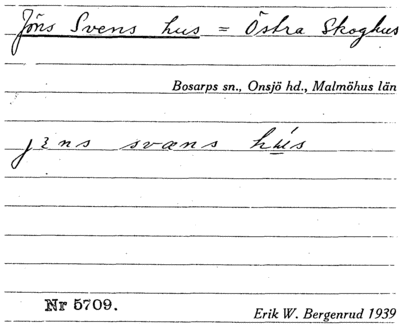 Jöns Svens hus = Östra Skoghus
Bosarps sn., Onsjö hd., Malmöhus län
svæns
Nr 5709.
Erik W. Bergenrud 1939